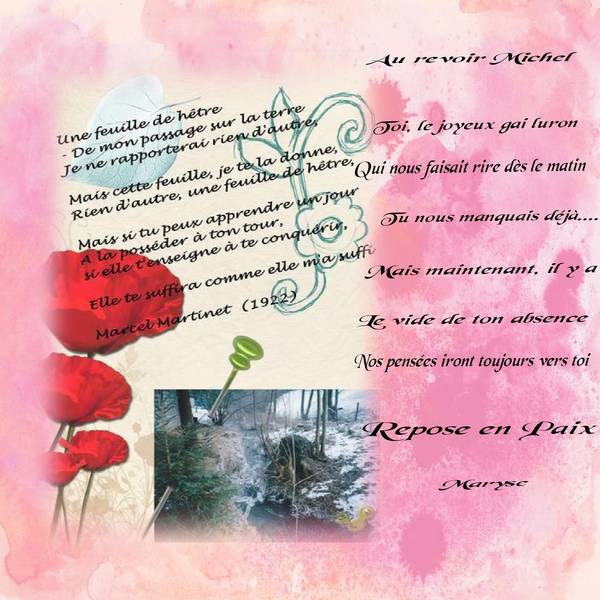 Une feuille de hêtre
- De mon passage sur la terre
Je ne rapporterai rien d'autre,
Mais cette feuille, je te la donne,
Rien d'autre, une feuille de hêtre,
Mais si tu peux apprendre un jour
A la posséder à ton tour,
si elle t'enseigne à te conquérir,
Elle te suffira comme elle m'a suffi
Marcel Martinet (1922)
Au revoir Michel
Toi, le joyeux gai luron
Qui nous faisait rire dès le matin
Tu nous manquais déjà....
Mais maintenant, il y a
Le vide de ton absence
Nos pensées iront toujours vers toi
Repose en Paix
Maryse